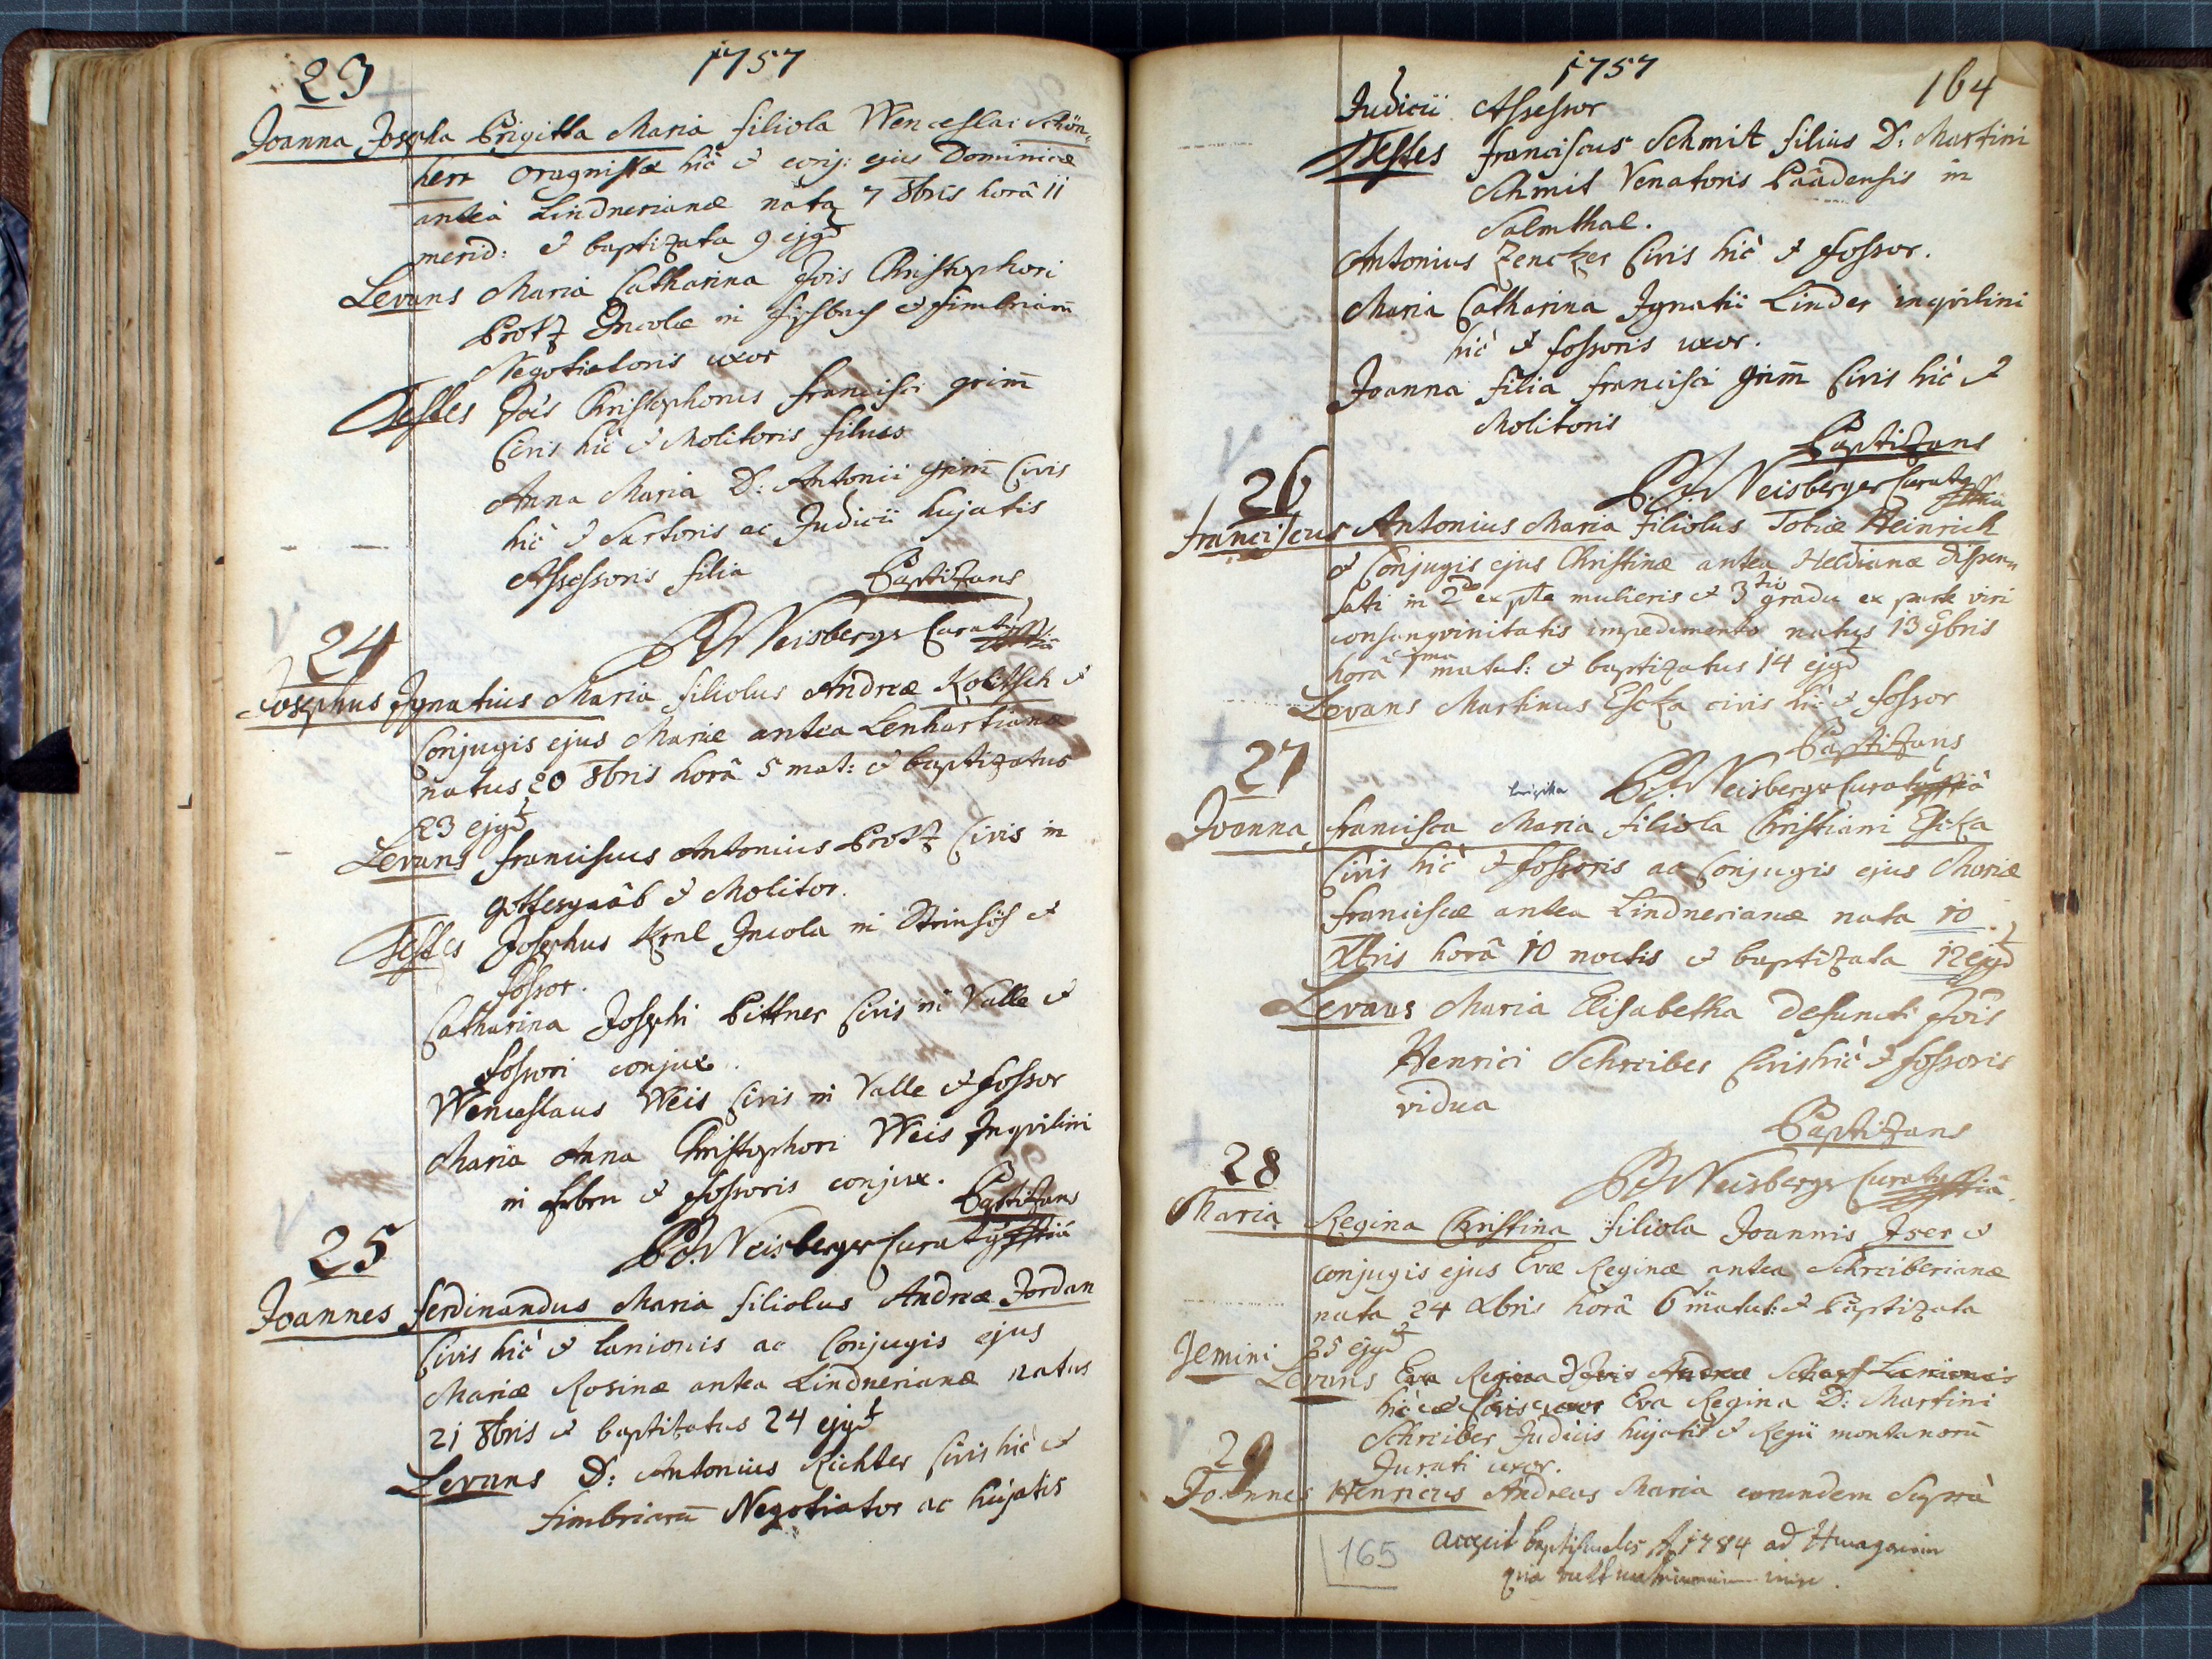 23
1757
Joanna Josepha Brigitta Maria filiola Wenceslai Schön-
herr Oragnistæ hic & conj: ejus Dominicæ
anteà Lindnerianæ nata 7 8bris horâ 11
merid: & baptizata 9 ejgd
Levans Maria Catharina Jois Christophori
Brotz Incolæ in & fimbriarū
Negotiatoris uxor
Testes Jois Christophorus Francisci Grim̄
Civis hic & Molitoris filius
Anna Maria D: Antonii Grim̄ Civis
hic & Sartoris ac Judicii hujatis
Assessoris filia
Baptizans
P.J. Weisberger Curatg
24
Josephus Ignatius Maria filiolus Andreæ Kolitsch &
Conjugis ejus Mariæ antea Lenhartianæ
natus 20 8bris horâ 5 mat: & baptizatus
23 ejgd
Levans Franciscus Antonius Brotz Civis in
Gottesgaab & Molitor.
Testes Josephus Kral Incola in &
fossor.
Catharina Josephi Bittner Civis in Valle &
fossori conjux.
Wenceslaus Weis Civis in Valle & fossor
Maria Anna Christophori Weis Inqvilini
in & fossoris conjux.
Baptizans
P.J. Weisberger Curatg
25
Joannes Ferdinandus Maria filiolus Andreæ Jordan
Civis hic & lanionis ac Conjugis ejus
Mariæ Rosinæ antea Lindnerianæ natus
21 8bris & baptizatus 24 ejgd
Levans D: Antonius Richter Civis hic &
fimbriarū Negotiator ac hujatis
1757
164
Judicii Assessor
Testes Franciscus Schmit filius D: Martini
Schmit Venatoris Baadensis in
Salmthal.
Antonius Zencker Civis hic & fossor.
Maria Catharina Ignatii Linder inqvilini
hic & fossoris uxor.
Joanna filia Francisci Grim̄ Civis hic &
Molitoris
Baptizans
P.J. Weisberger Curatg
26
Franciscus Antonius Maria filiolus Tobiæ Heinrich
& Conjugis ejus Christinæ antea Heldianæ dispen-
sati in 2do ex pte mulieris & 3tio gradu ex parte viri
consangvinitatis impedimento natus 13 9bris
horâ 7ma matut: & baptizatus 14 ejgd
Levans Martinus Escka civis hic & fossor
Baptizans
P.J. Weisberger Curatg
27
brigitta
Joanna Francisca Maria filiola Christiani Escka
Civis hic & fossoris ac Conjugis ejus Mariæ
Franciscæ antea Lindnerianæ nata 10
Xbris horâ 10 noctis & baptizata 12 ejgd
Levans Maria Elisabetha defuncti Jois
Henrici Schreiber Civis hic & fossoris
vidua
Baptizans
P.J. Weisberger Curatg
28
Maria Regina Christina filiola Joannis Iser &
conjugis ejus Evæ Reginæ antea Schreiberianæ
nata 24 Xbris horâ 6ta matut: & Baptizata
Gemini 25 ejgd
Levans Eva Regina Jois Andreæ Scharf Lanionis
hic & Civis uxor Eva Regina D: Martini
Schreiber Judicii hujatis & Regii montanorū
Jurati uxor.
29
Joannes Henricus Andreas Maria eorundem Suprà
165
1784 ad